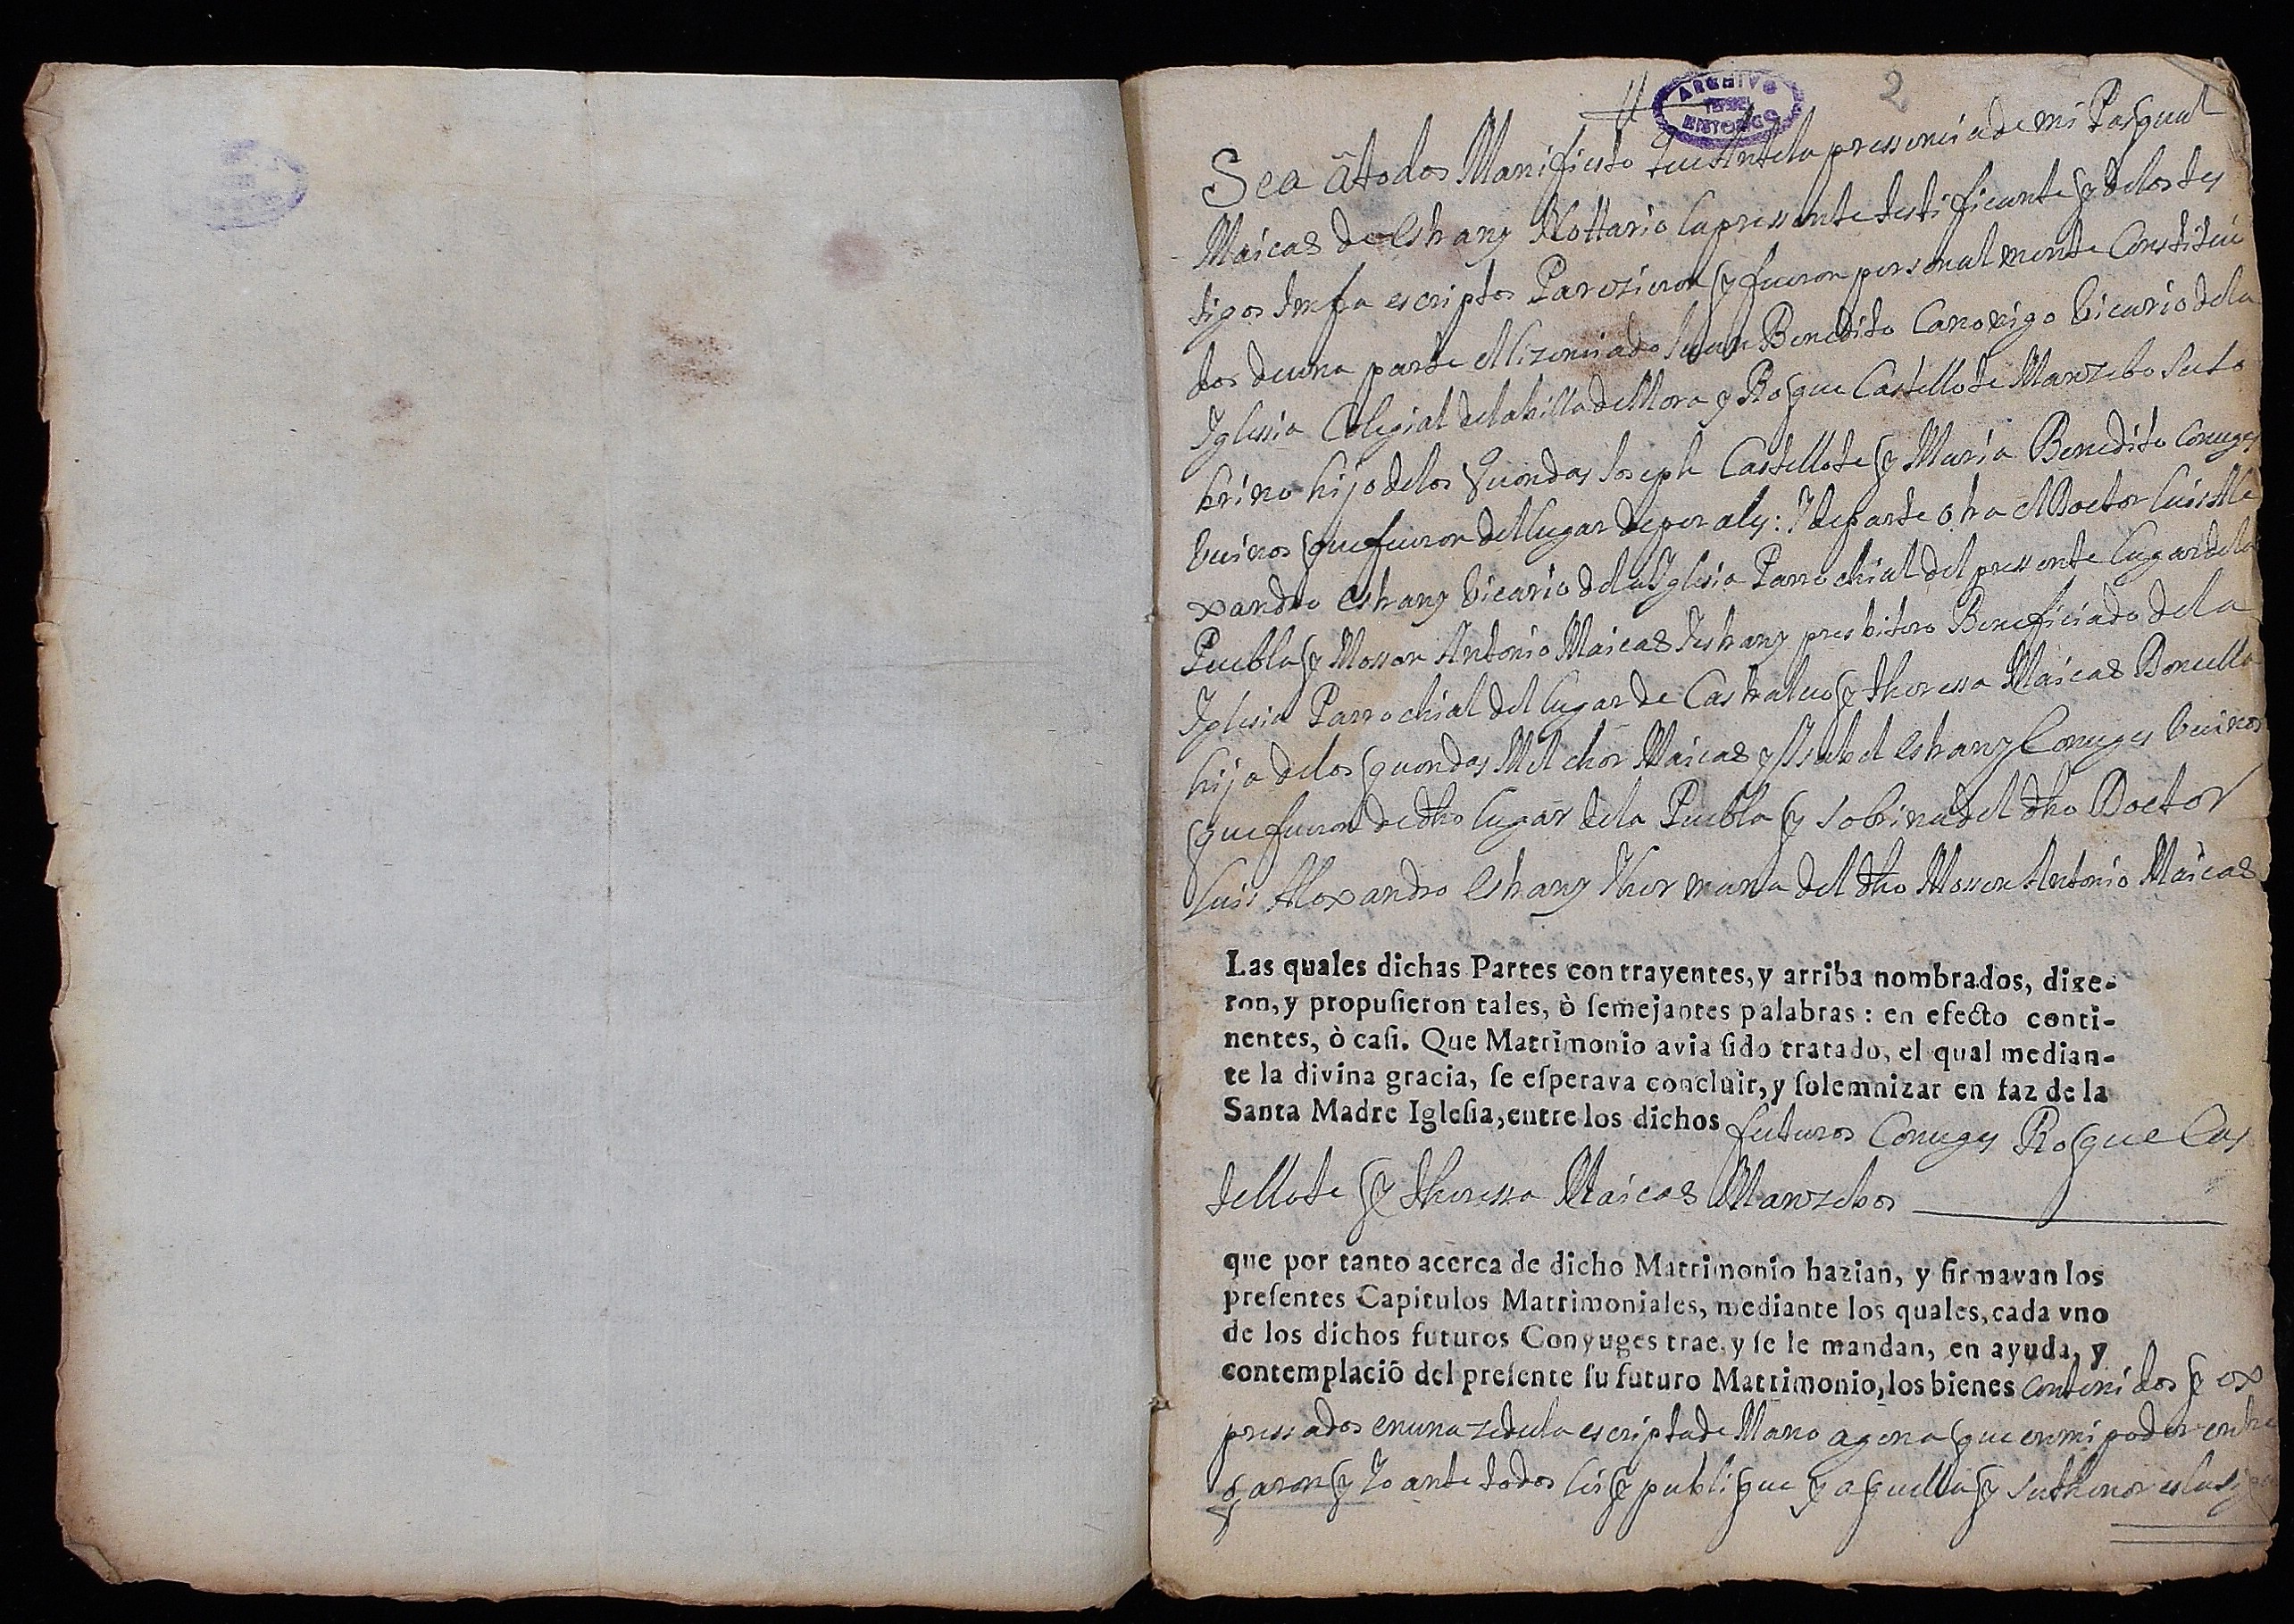 2
ARCHIVO
HISTORICO
Sea â todos Manifiesto que Ante la pressencia de mi Pasqual
Maicas de estrany Nottario la pressente testificante y de los tes
tigos Infra escriptos Parezieron y fueron personalmente Constitui
dos de una parte el lizenciado Juan Benedito Canonigo bicario de la
Iglesia Colegial de la billa de Mora y Roque Castellote Manzebo su so
brino hijo de los quondas Joseph Castellote y Maria Benedito Conuges
becinos que fueron del lugar de perales: Y de parte otra el Doctor luis Ale
xandro estrany bicario de la Iglesia Parrochial del pressente lugar de la
Puebla y Mossen Antonio Maicas Iestrany presbitero Beneficiado de la
Iglesia Parrochial del lugar de Castralvo y theressa Maicas Doncella
hija de los quondas Melchor Maicas y Isabel estrany Conuges becinos
que fueron de dho lugar de la Puebla y sobrina del dho Doctor
luis Alexandro estrany Y hermana del dho Mossen Antonio Maicas
Las quales dichas Partes contrayentes, y arriba nombrados, dixe-
ron, y propuſieron tales, ò ſemejantes palabras : en efecto conti-
nentes, ò caſi. Que Matrimonio avia ſido tratado, el qual median-
te la divina gracia, ſe eſperava concluir, y ſolemnizar en faz de la
Santa Madre Igleſia, entre los dichos futuros Conuges Roque Cas
tellote y theressa Maicas Manzebos
que por tanto acerca de dicho Matrimonio hazian, y firmavan los
preſentes Capitulos Matrimoniales, mediante los quales, cada vno
de los dichos futuros Conyuges trae, y ſe le mandan, en ayuda, y
contemplaciõ del preſente ſu futuro Matrimonio, los bienes contenidos y ex
pressados en una zedula escripta de Mano agena que en mi poder entre
garon y Yo ante todos lei y publique y aquella y su thenor es la